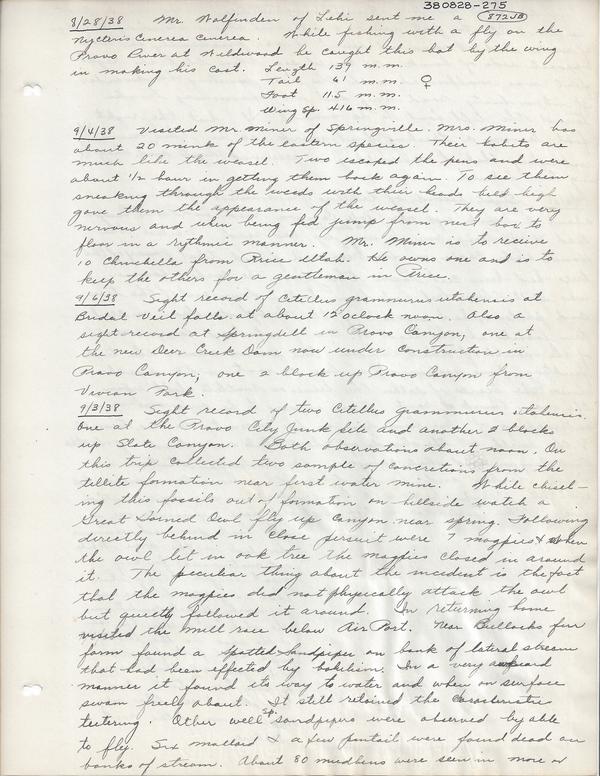 380828-275
8/28/38 Mr. Wolfinden of Lehi sent me a 872JB
Nycteris Cinerea Cinerea. While fishing with a fly on the
Provo River at Wildwood he caught this bat by the wing
in making his cast. Length 139 m.m.
Tail 61 m.m. ♀
Foot 11.5 m.m.
Wing Sp. 416 m.m.
9/4/38 Visited Mr. Miner of Springville. Mrs. Miner has
about 20 mink of the eastern species. Their habits are
much like the weasel. Two escaped the pens and were
about 1/2 hour in getting them back again. To see them
sneaking through the weeds with their heads held high
gave them the appearance of the weasel. They are very
nervous and when being fed jump from nest box to
floor in a rythmic manner. Mr. Miner is to receive
10 Chinchilla from Price Utah. He owns one and is to
keep the others for a gentleman in Price.
9/6/38 Sight record of Citellus grammurus utahensis at
Bridal Veil falls at about 12 oclock noon. Also a
sight record at Springdell in Provo Canyon; one at
the new Deer Creek Dam now under construction in
Provo Canyon; one 2 block up Provo Canyon from
Vivian Park.
9/3/38 Sight record of two Citellus grammurus utahensis.
One at the Provo City Junk pile and another 2 blocks
up Slate Canyon. Both observations about noon. On
this trip collected two sample of concretions from the
tillite formation near first water mine. While chisel-
ing this fossils out of formation on hillside watch a
Great Horned Owl fly up canyon near spring. Following
directly behind in close persuit were 7 magpies & when
the owl lit in oak tree the magpies closed in around
it. The peculiar thing about the incident is the fact
that the magpies did not physically attack the owl
but quietly followed it around. In returning home
visited the mill race below Air Port. Near Bullocks fur
farm found a Spotted Sandpiper on bank of lateral stream
that had been effected by botulism. In a very awkward
manner it found its way to water and when on surface
swam freely about. It still retained the characteristic
teetering. Other well sp. sandpipers were observed by able
to fly. Six mallard & a few pintail were found dead on
banks of stream. About 80 mudhens were seen in more or